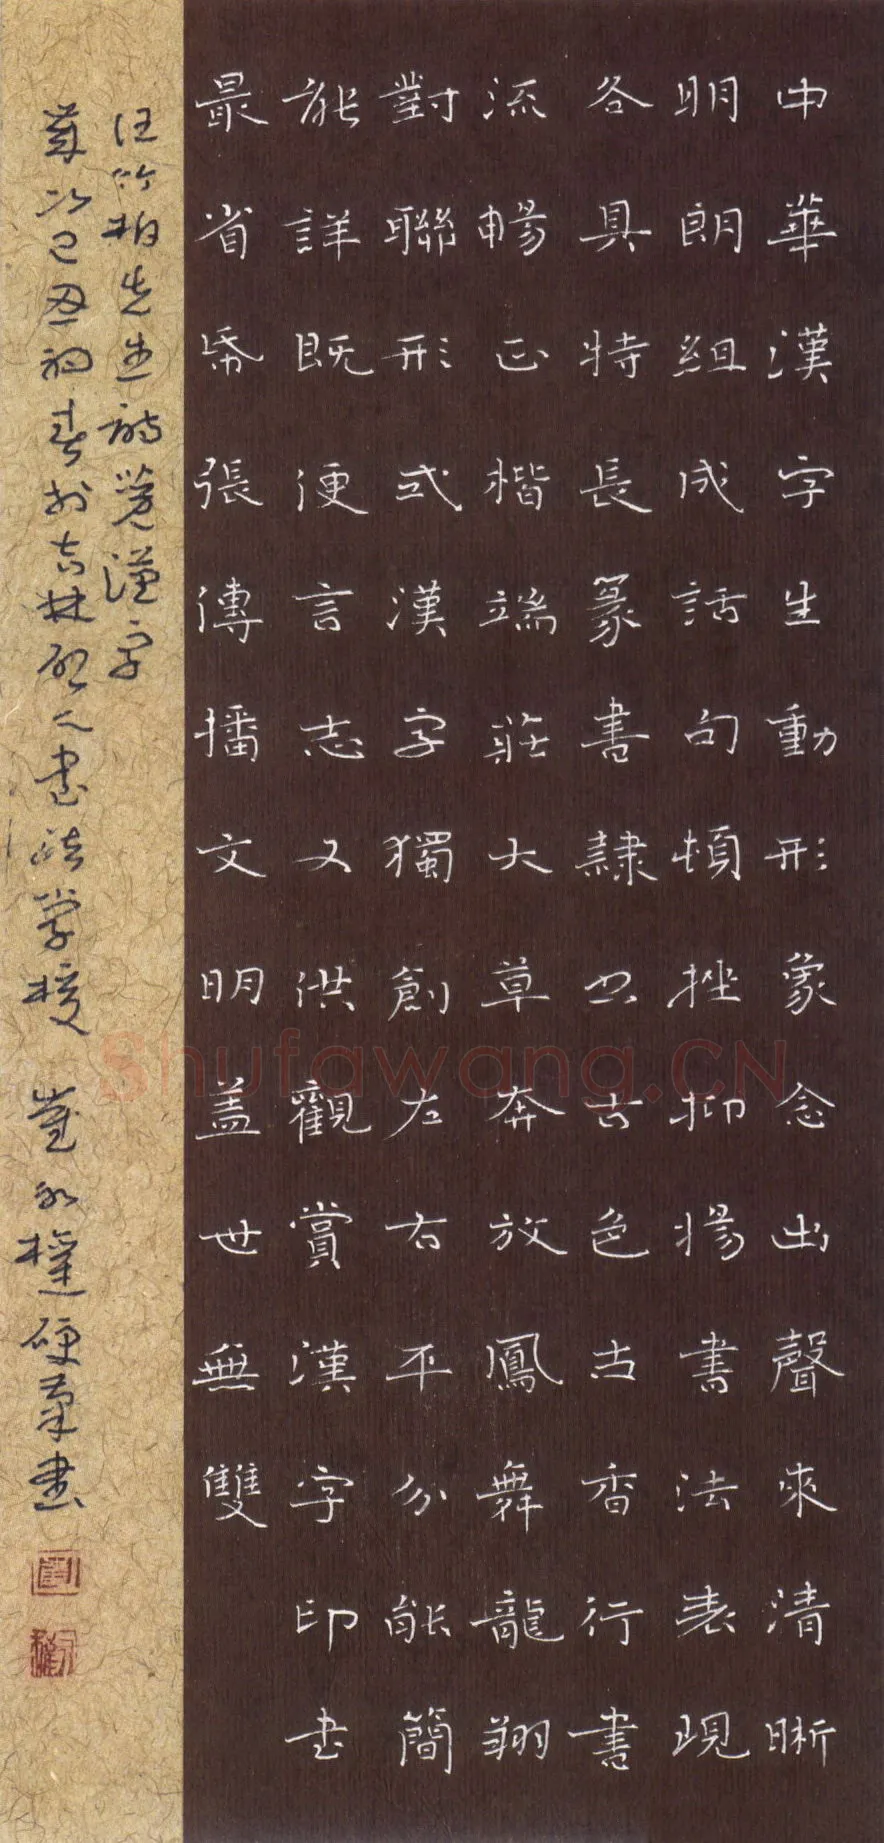 中華漢字生動形象念出聲來清晰
明朗組成話句頓挫抑揚書法表現
各具特長篆書隸書古色古香行書
流暢正楷端莊大草奔放鳳舞龍翔
對聯形式漢字獨創左右平分能簡
能詳既便言志又供觀賞漢字印书
最省紙張傳播文明蓋世無雙
汪竹柏先生詩贊漢字
歲次己丑初春於吉林 人書法学校 崔 權硬筆書
Shufawang.CN